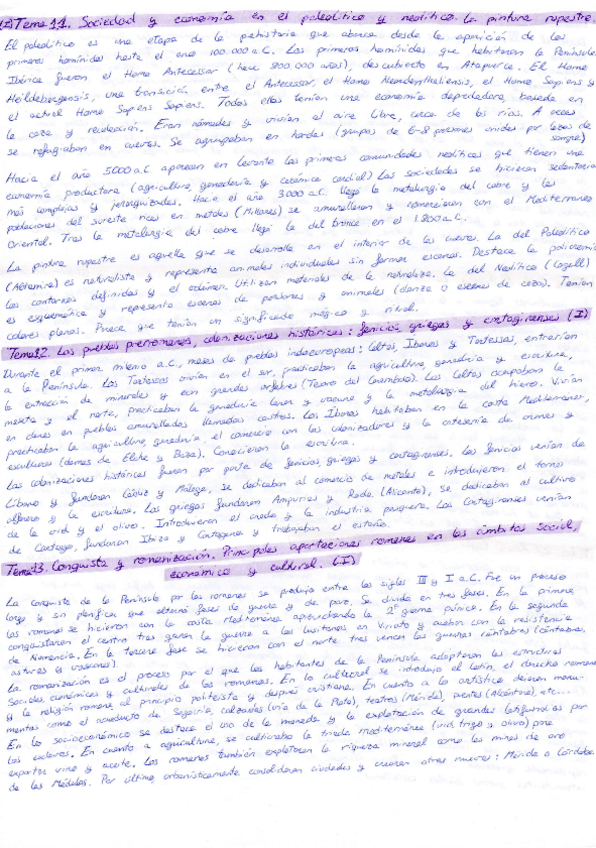 (I) Tema 1.1. Sociedad y economía en el paleolítico y neolítico. La pintura rupestre.
El paleolítico es una etapa de la prehistoria que abarca desde la aparición de los
primeros homínidos hasta el año 100.000 a.C. Los primeros homínidos que habitaron la Península
Ibérica fueron el Homo Antecessor (hace 800.000 años), descubierto en Atapuerca. El Homo
Heildebergensis, una transición entre el Antecessor, el Homo Neanderthaliensis, el Homo Sapiens y
el actual Homo Sapiens Sapiens. Todos ellos tenían una economía depredadora, basada en
la caza y recolección. Eran nómadas y vivían al aire libre, cerca de los ríos. A veces
se refugiaban en cuevas. Se agrupaban en hordas (grupos de 6-8 personas unidos por lazos de
sangre)
Hacia el año 5000 a.C. aparecen en levante las primeras comunidades neolíticas que tienen una
economía productora (agricultura, ganadería y cerámica cardial) Las sociedades se hicieron sedentarias
más complejas y jerarquizadas. Hacia el año 3000 a.C. llegó la metalurgia del cobre y las
poblaciones del sureste ricas en metales (Millares) se amurallaron y comerciaron con el Mediterráneo
Oriental. Tras la metalurgia del cobre llegó la del bronce en el 1.800 a.C.
La pintura rupestre es aquella que se desarrolla en el interior de las cuevas. La del Paleolítico
(Altamira) es naturalista y representa animales individuales sin formar escenas. Destaca la policromía
los contornos definidos y el volumen. Utilizan materiales de la naturaleza. La del Neolítico (Cogull)
es esquemática y representa escenas de personas y animales (danza o escenas de caza). Tenían
colores planos. Parece que tenían un significado mágico y ritual.
Tema 1.2. Los pueblos prerromanos, colonizaciones históricas: fenicios, griegos y cartagineses (I)
Durante el primer milenio a.C., meses de pueblos indoeuropeas: Celtas, Iberos y Tartessos, entrarían
a la Península. Los Tartessos vivían en el sur, practicaban la agricultura, ganadería y escritura,
la extracción de minerales y eran grandes orfebres (Tesoro del Carambolo). Los Celtas ocupaban la
meseta y el norte, practicaban la ganadería lanar y vacuna y la metalurgia del hierro. Vivían
en clanes en pueblos amurallados llamados castros. Los Iberos habitaban en la costa Mediterránea,
practicaban la agricultura, ganadería, el comercio con los colonizadores y la artesanía de armas y
esculturas (damas de Elche y Baza). Conocieron la escritura.
Las colonizaciones históricas fueron por parte de fenicios, griegos y cartagineses. Los fenicios venían de
Líbano y fundaron Cádiz y Málaga, se dedicaban al comercio de metales e introdujeron el torno
alfarero y la escritura. Los griegos fundaron Ampurias y Roda (Alicante), se dedicaban al cultivo
de la vid y el olivo. Introdujeron el arado y la industria pesquera. Los Cartagineses venían
de Cartago, fundaron Ibiza y Cartagena y trabajaban el estaño.
Tema 1.3. Conquista y romanización. Principales aportaciones romanas en los ámbitos social,
económico y cultural. (I)
La conquista de la Península por los romanos se produjo entre los siglos III y I a.C. Fue un proceso
largo y sin planificar que alternó fases de guerra y de paz. Se divide en tres fases. En la primera
los romanos se hicieron con la costa mediterránea aprovechando la 2ª guerra púnica. En la segunda
conquistaron el centro tras ganar la guerra a los lusitanos en Viriato y acabar con la resistencia
de Numancia. En la tercera fase se hicieron con el norte tras vencer las guerras cántabras (cántabros,
astures y vascones).
La romanización es el proceso por el que los habitantes de la Península adoptaron las estructuras
sociales, económicas y culturales de los romanos. En lo cultural se introdujo el latín, el derecho romano
y la religión romana al principio politeísta y después cristiana. En cuanto a lo artístico dejaron monu-
mentos como el acueducto de Segovia, calzadas (vía de la Plata), teatros (Mérida), puentes (Alcántara), etc...
En lo socioeconómico se destaca el uso de la moneda y la explotación de grandes latifundios por
los esclavos. En cuanto a agricultura, se cultivaba la triada mediterránea (vid, trigo y olivo) para
exportar vino y aceite. Los romanos también explotaron la riqueza mineral como las minas de oro
de las Médulas. Por último, urbanísticamente consolidaron ciudades y crearon otras nuevas: Mérida o Córdoba.